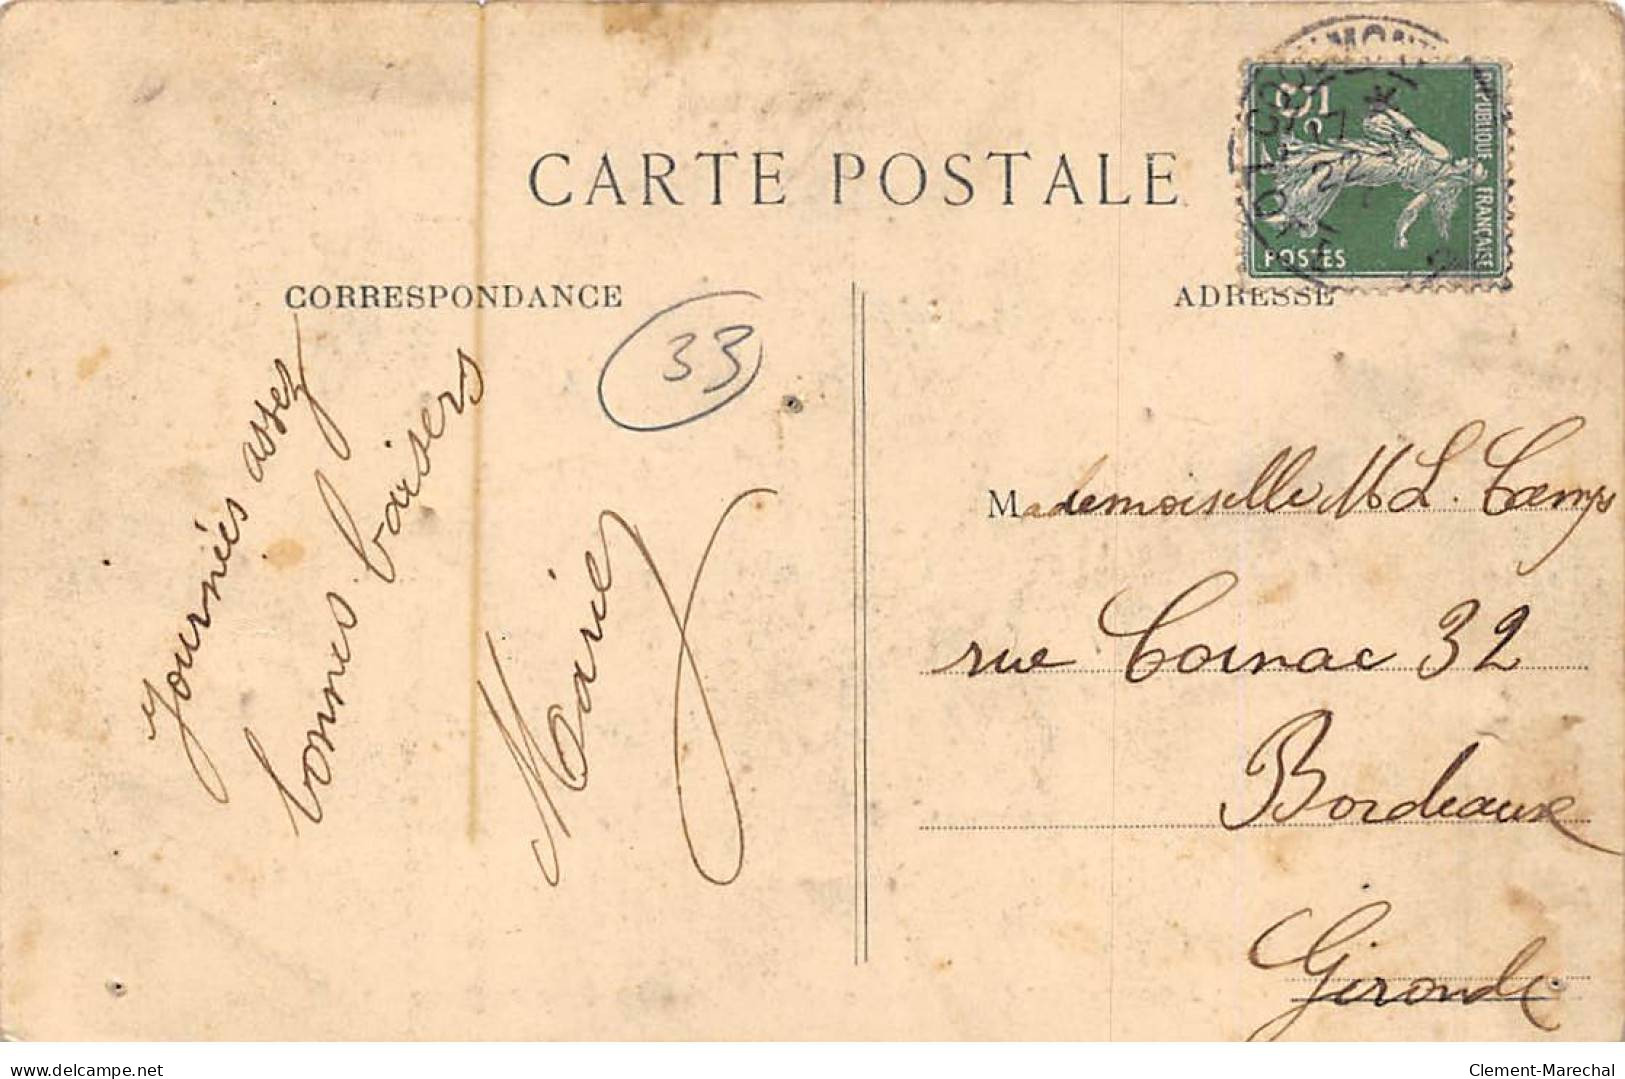 CARTE POSTALE
RÉPUBLIQUE FRANÇAISE
POSTES
CORRESPONDANCE
ADRESSE
33
Journées assez
bonnes baisers
Marie
Mademoiselle M L. Camps
rue Cornac 32
Bordeaux
Gironde
delcampe.net
Clement-Marechal